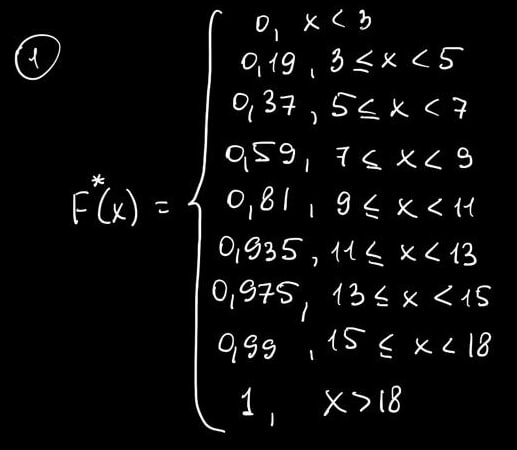 1
0, x < 3
0,19, 3 ≤ x < 5
0,37, 5 ≤ x < 7
0,59, 7 ≤ x < 9
F*(x) = { 0,81, 9 ≤ x < 11
0,935, 11 ≤ x < 13
0,975, 13 ≤ x < 15
0,99, 15 ≤ x < 18
1, x > 18